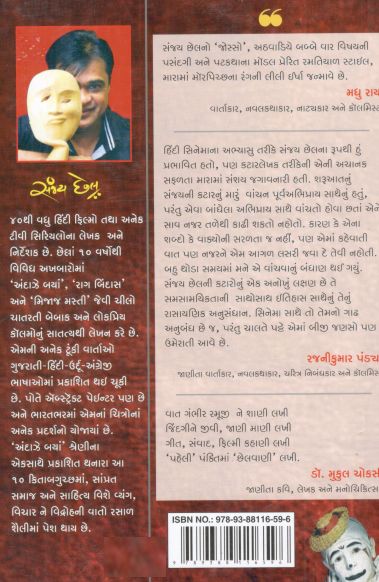 ❝
સંજય છેલનો 'જોસ્સો', અઠવાડિયે બબ્બે વાર વિષયની
પસંદગી અને પટકથાના મૉડલ પ્રેરિત રમતિયાળ સ્ટાઇલ,
મારામાં મોરપિચ્છના રંગની લીલી ઈર્ષા જન્માવે છે.
મધુ રાય
વાર્તાકાર, નવલકથાકાર, નાટ્યકાર અને કૉલમિસ્ટ
હિંદી સિનેમાના અભ્યાસુ તરીકે સંજય છેલના રૂપથી હું
પ્રભાવિત હતો, પણ કટારલેખક તરીકેની એની અચાનક
સફળતા મારામાં સંશય જગાવનારી હતી. શરૂઆતનું
સંજયની કટારનું મારું વાંચન પૂર્વઅભિપ્રાય સાથેનું હતું,
પરંતુ એવા બાંધેલા અભિપ્રાય સાથે વાંચતો હોવા છતાં એને
સાવ નજર તળેથી કાઢી શકતો નહોતો. કારણ કે એના
શબ્દો કે વાક્યોની સરળતા જ નહીં, પણ એમાં કહેવાતી
વાત પણ નજરને એમ આગળ લસરી જવા દે તેવી નહોતી.
બહુ થોડા સમયમાં મને એ વાંચવાનું બંધાણ થઈ ગયું.
સંજય છેલની કટારોનું એક અનોખું લક્ષણ છે તે
સમસામયિકતાની સાથોસાથ ઇતિહાસ સાથેનું તેનું
રાસાયણિક અનુસંધાન. સિનેમા સાથે તો તેમનો ગાઢ
અનુબંધ છે જ, પરંતુ ચાલતે પક્ષે એમાં બીજી જણસો પણ
ઉમેરાતી આવે છે.
રજનીકુમાર પંડ્યા
જાણીતા વાર્તાકાર, નવલકથાકાર, ચરિત્ર નિબંધકાર અને કૉલમિસ્ટ
વાત ગંભીર રમૂજી ને શાણી લખી
જિંદગીને જીવી, જાણી માણી લખી
ગીત, સંવાદ, ફિલ્મી કહાણી લખી
'પહેલી' પંક્તિમાં 'છેલવાણી' લખી.
ડૉ. મુકુલ ચોકસી
જાણીતા કવિ, લેખક અને મનોચિકિત્સક
સંજય છેલ
૪૦થી વધુ હિંદી ફિલ્મો તથા અનેક
ટીવી સિરિયલોના લેખક અને
નિર્દેશક છે. છેલ્લાં ૧૦ વર્ષોથી
વિવિધ અખબારોમાં
'અંદાઝે બયાં', 'રાગ બિંદાસ'
અને 'મિજાજ મસ્તી' જેવી ચીલો
ચાતરતી બેબાક અને લોકપ્રિય
કૉલમોનું સાતત્યથી લેખન કરે છે.
એમની અનેક ટૂંકી વાર્તાઓ
ગુજરાતી-હિંદી-ઉર્દૂ-અંગ્રેજી
ભાષાઓમાં પ્રકાશિત થઈ ચૂકી
છે. પોતે ઍબ્સ્ટ્રેક્ટ પેઇન્ટર પણ છે
અને ભારતભરમાં એમનાં ચિત્રોનાં
અનેક પ્રદર્શનો યોજાયાં છે.
'અંદાઝે બયાં' શ્રેણીના
એકસાથે પ્રકાશિત થનારા આ
૧૦ કિતાબગુચ્છમાં, સાંપ્રત
સમાજ અને સાહિત્ય વિશે વ્યંગ,
વિચાર ને વિદ્રોહની વાતો રસાળ
શૈલીમાં પેશ થાય છે.
ISBN NO.: 978-93-88116-59-6
9 789388 116596